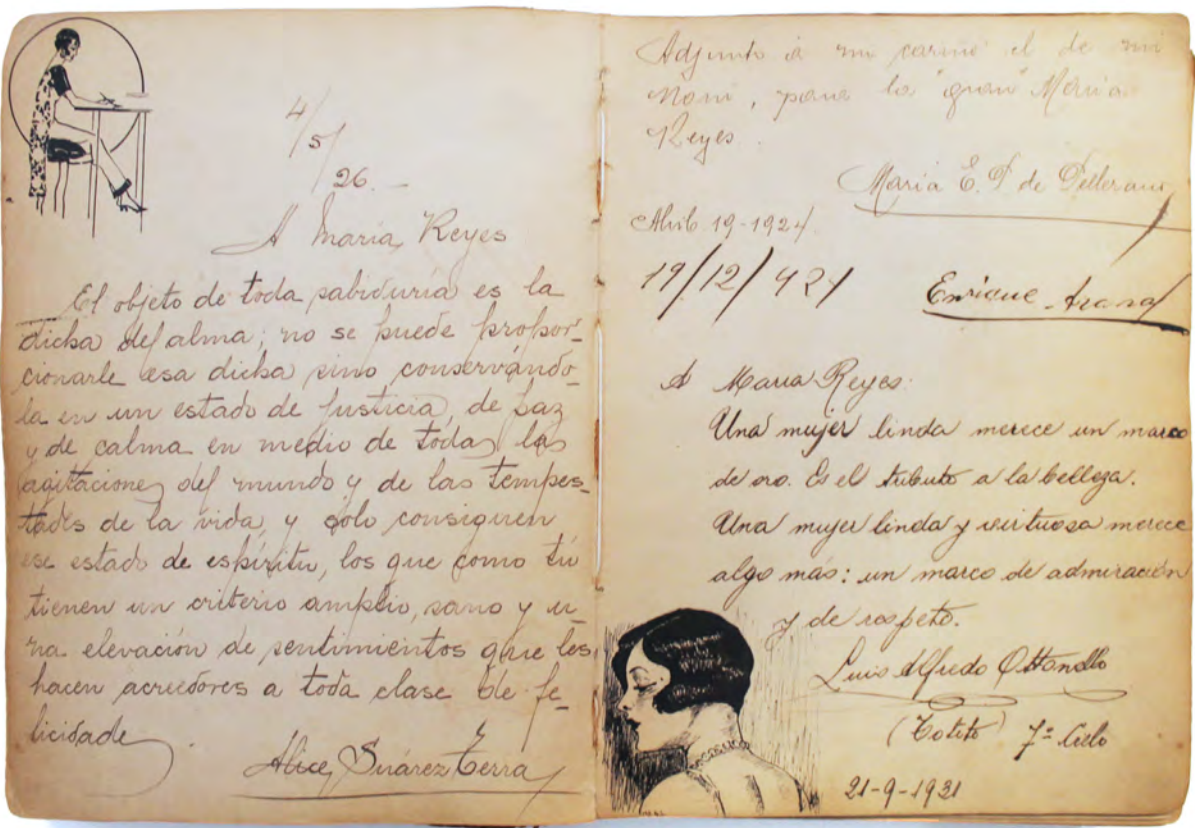 4/5/26.-
A Maria Reyes
El objeto de toda sabiduría es la
dicha del alma; no se puede propor-
cionarle esa dicha sino conservándo-
la en un estado de justicia, de paz
y de calma en medio de todas las
agitaciones del mundo y de las tempes-
tades de la vida, y solo consiguen
ese estado de espíritu, los que como tú
tienen un criterio amplio, sano y u-
na elevación de sentimientos que les
hacen acreedores a toda clase de fe-
licidades.
Alice Suárez Terra
Adjunto á mi cariño el de mi
Noni, para la "gran" María
Reyes.
María E. P. de Pellerano
Abril 19-1924.
19/12/924
Enrique Arana
A Maria Reyes:
Una mujer linda merece un marco
de oro. Es el tributo a la belleza.
Una mujer linda y virtuosa merece
algo más: un marco de admiración
y de respeto.
Luis Alfredo
(Totito) 7º Cielo
21-9-1931